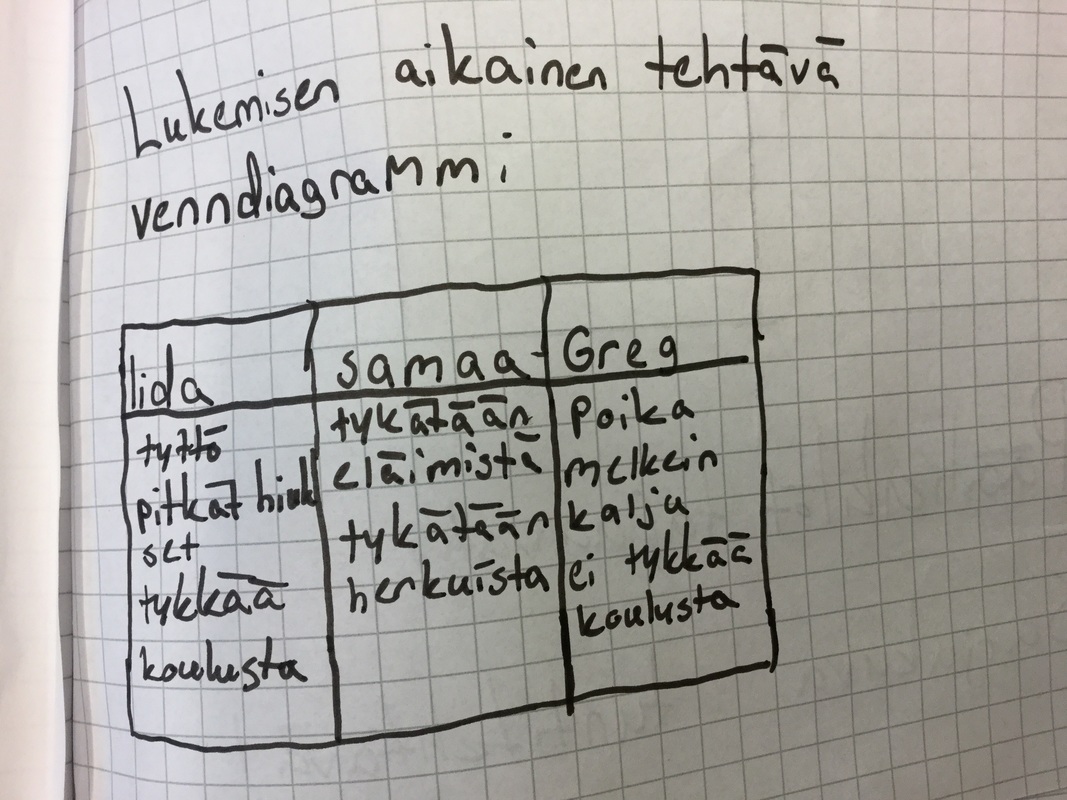 Lukemisen aikainen tehtävä
venndiagrammi
Iida
samaa
Greg
tyttö
pitkät hiuk
set
tykkää
koulusta
tykätään
eläimistä
tykätään
herkuista
Poika
melkein
kalju
ei tykkää
koulusta